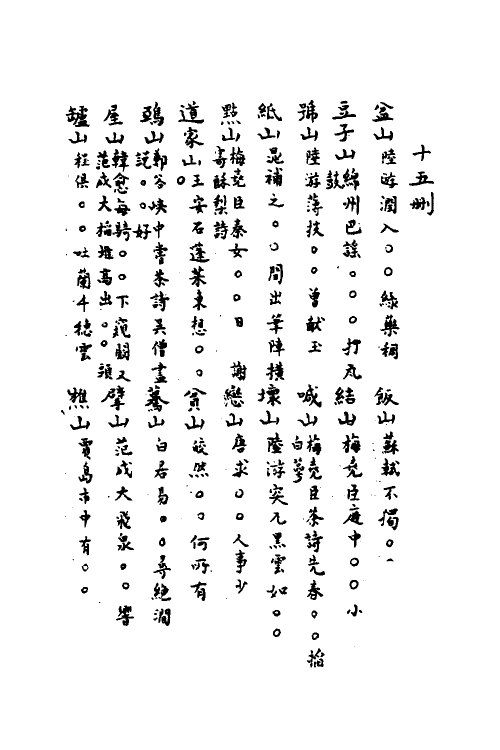 十五刪
盆山陸游澗入。。綠藥稠 飯山蘇軾不獨。。
豆子山綿州巴謠。。。打瓦鼓 結山梅堯臣庭中。。小
號山陸游薄技。。曾獻玉 喊山梅堯臣茶詩先春。。掐白萼
紙山晁補之。。間出筆陣橫 壞山陸游突兀黑雲如。。
點山梅堯臣秦女。。日 謝寄酥梨詩 戀山唐求。。人事少
道家山王安石蓬萊東想。。。 貧山皎然。。何所有
鵶山鄭谷峽中嘗茶詩吳僧盡說。。好 驀山白居易。。尋絕澗
屋山韓愈每騎。。下窺闞又范成大稻堆高出。。頭 擘山范成大飛泉。。響
罏山程俱。。吐蘭千穗雲 樵山賈島市中有。。